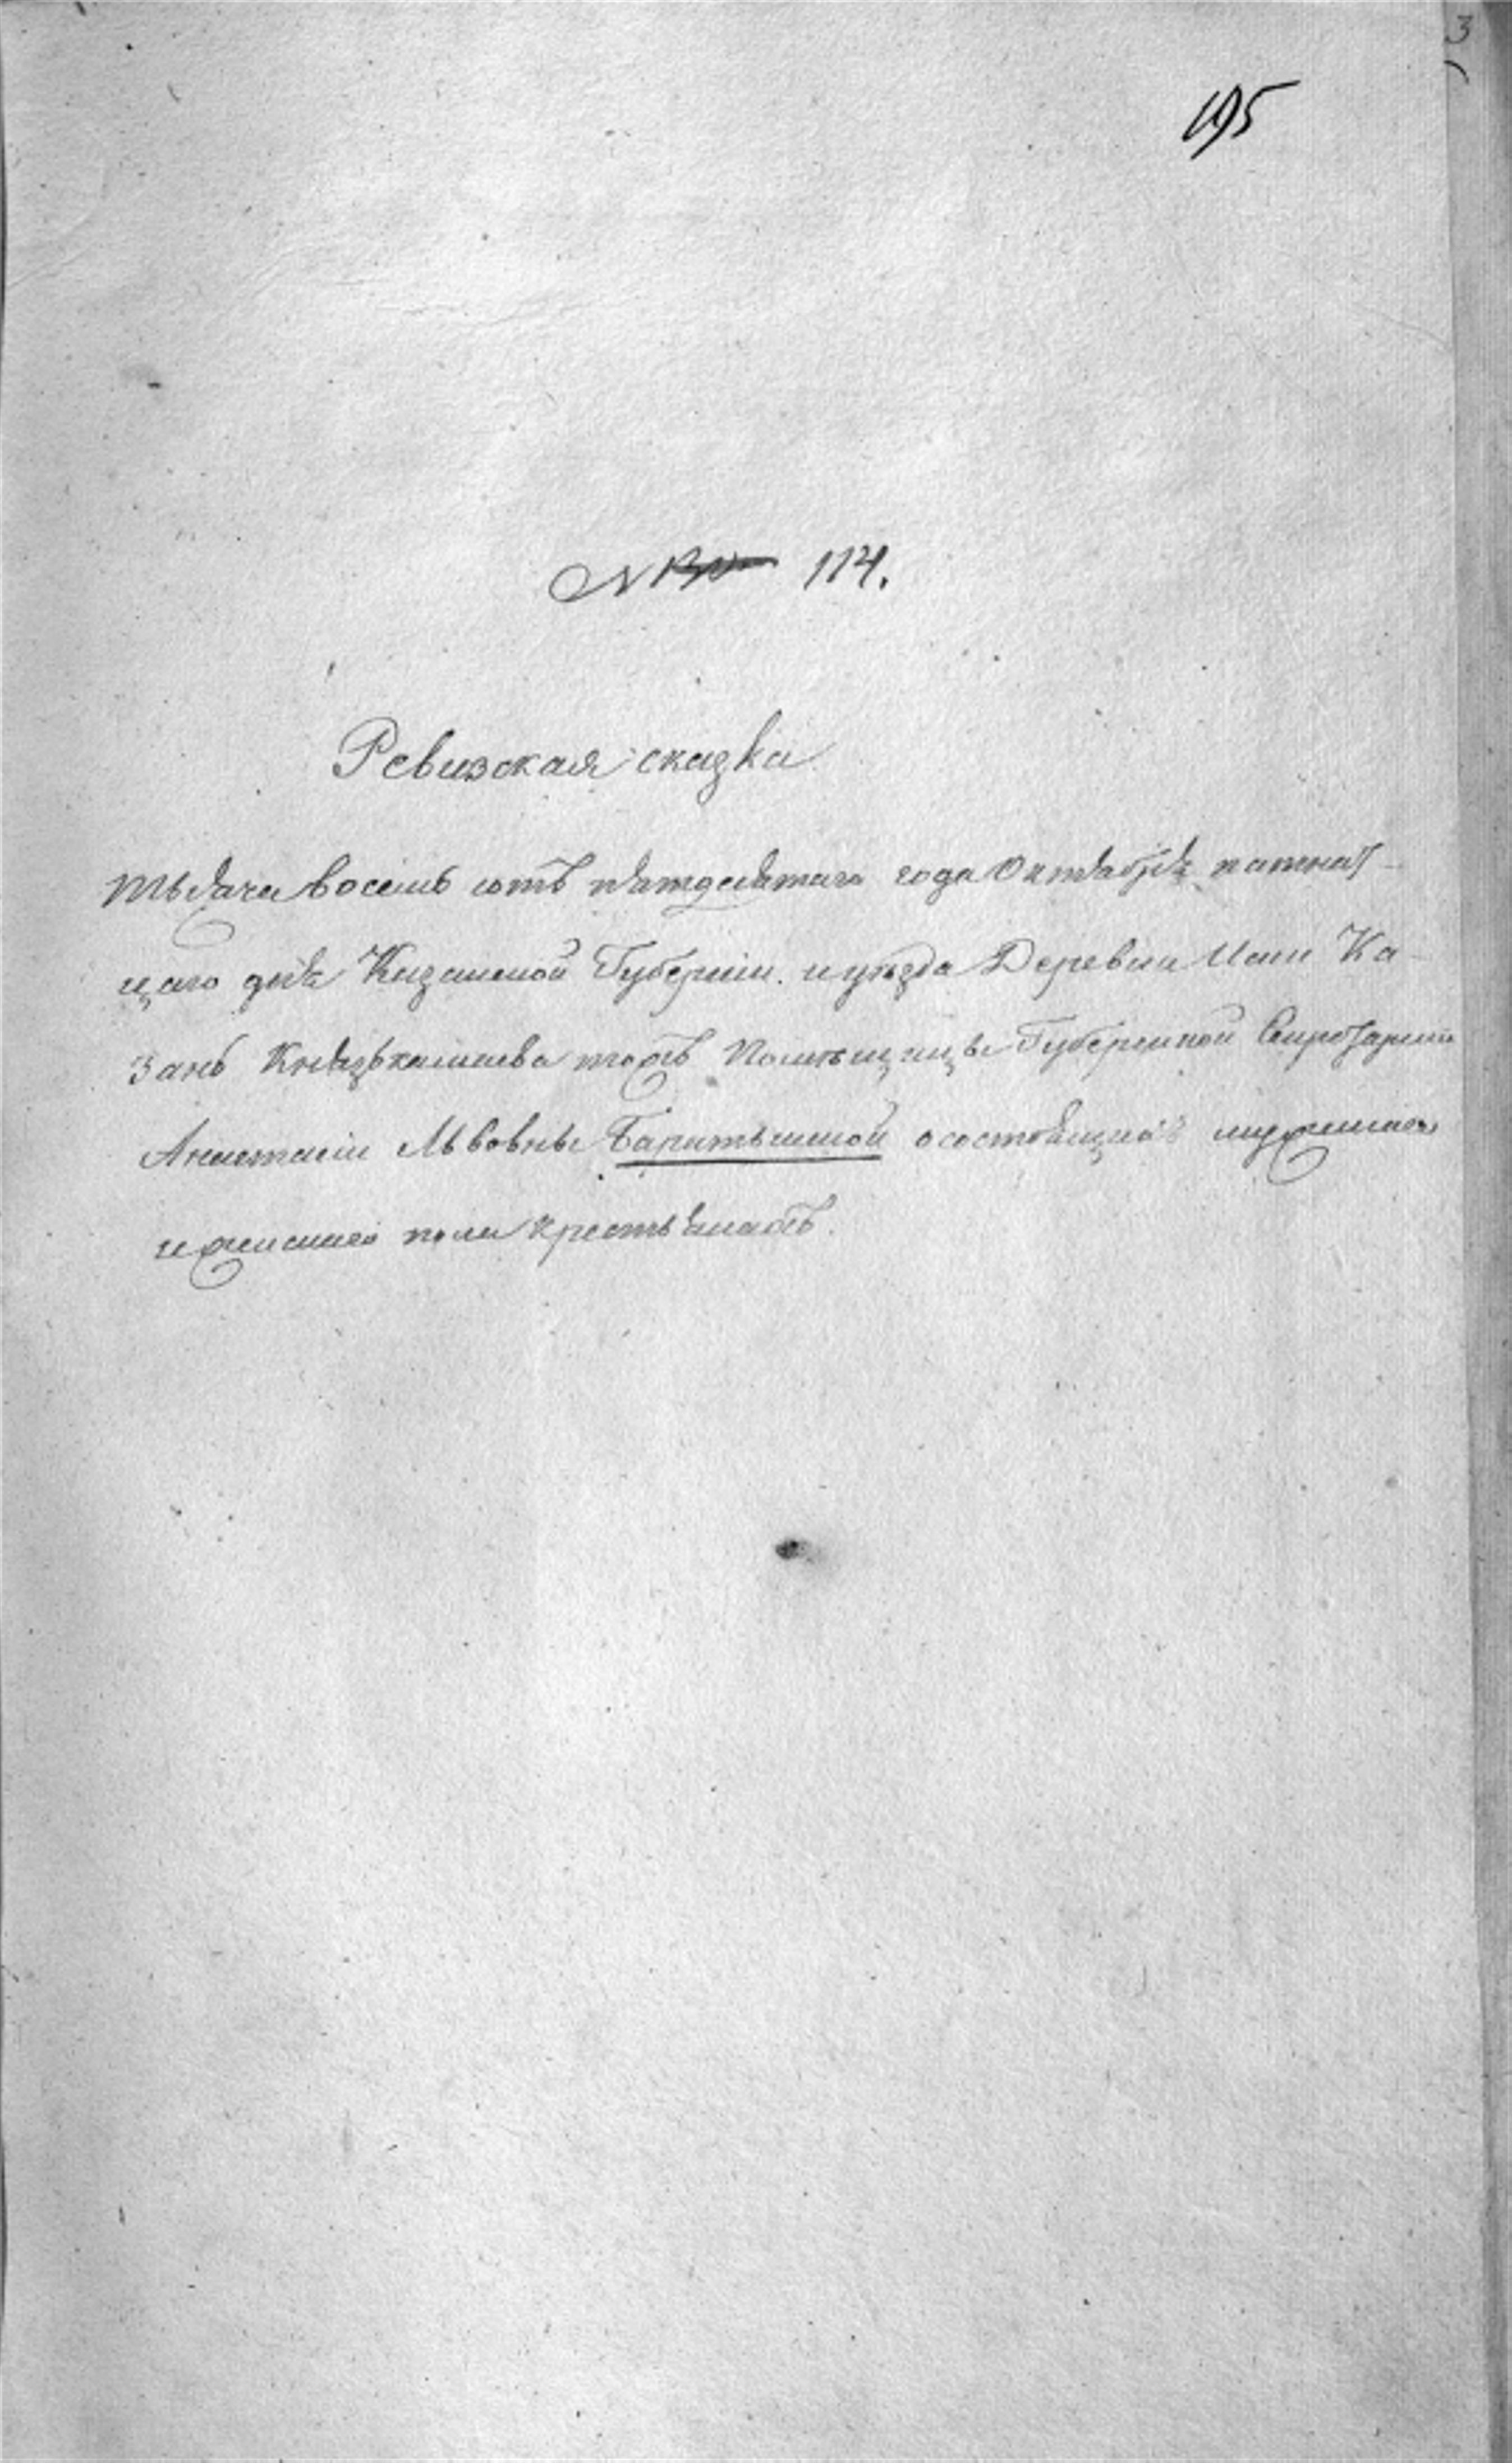 3
195
N 114.
Ревизская сказка
Тысяча восемь сотъ пятдесятаго года Октября пятнат-
цаго дня Казанской Губернiи. и уѣзда Деревни Иски Ка-
зань Князькамаева тожъ Помѣщицы Губернской
Анастасiи Львовны о состоящихъ мужеска
и женскаго пола крестьянахъ.